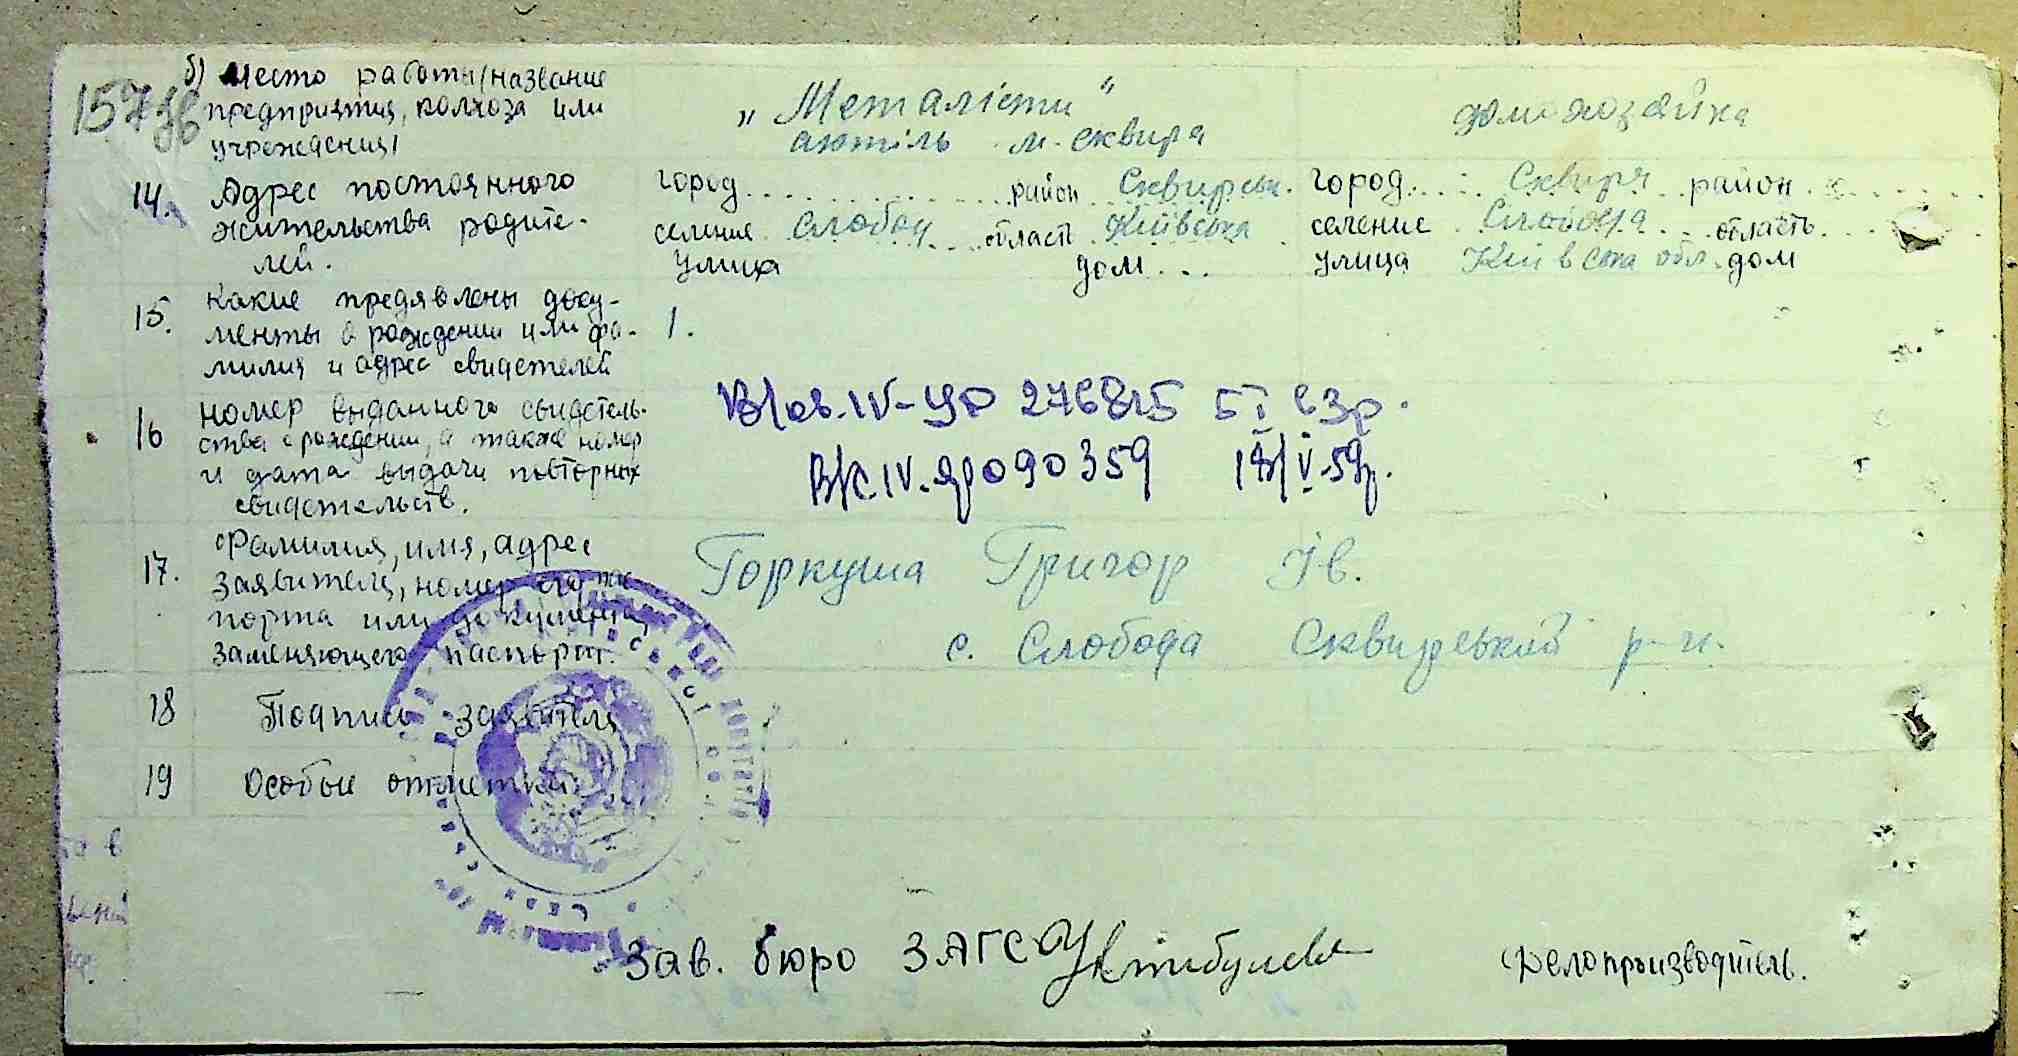 б) Место работы (название
предприятия, колхоза или
учреждения)
„Металісти“
артіль м. Сквира
домохозяйка
14. Адрес постоянного
жительства родите-
лей.
город район Сквирськ.
селение Слобод область Київська
улица дом
город Сквиря район
селение Слобода область
улица Київська обл. дом
15. Какие предявлены доку-
менты о рождении или фа-
милия и адрес свидетелей
1.
16 Номер выданного свидетель-
ства о рождении, а также номер
и дата выдачи повторных
свидетельств.
276815
090359
17. Фамилия, имя, адрес
заявителя, номер его пас
порта или документа,
заменяющего паспорт.
Горкуша Григор Ів.
с. Слобода Сквирський р-н.
18 Подпись заявителя
19 Особые отметки
Зав. бюро ЗАГС
Делопроизводитель.